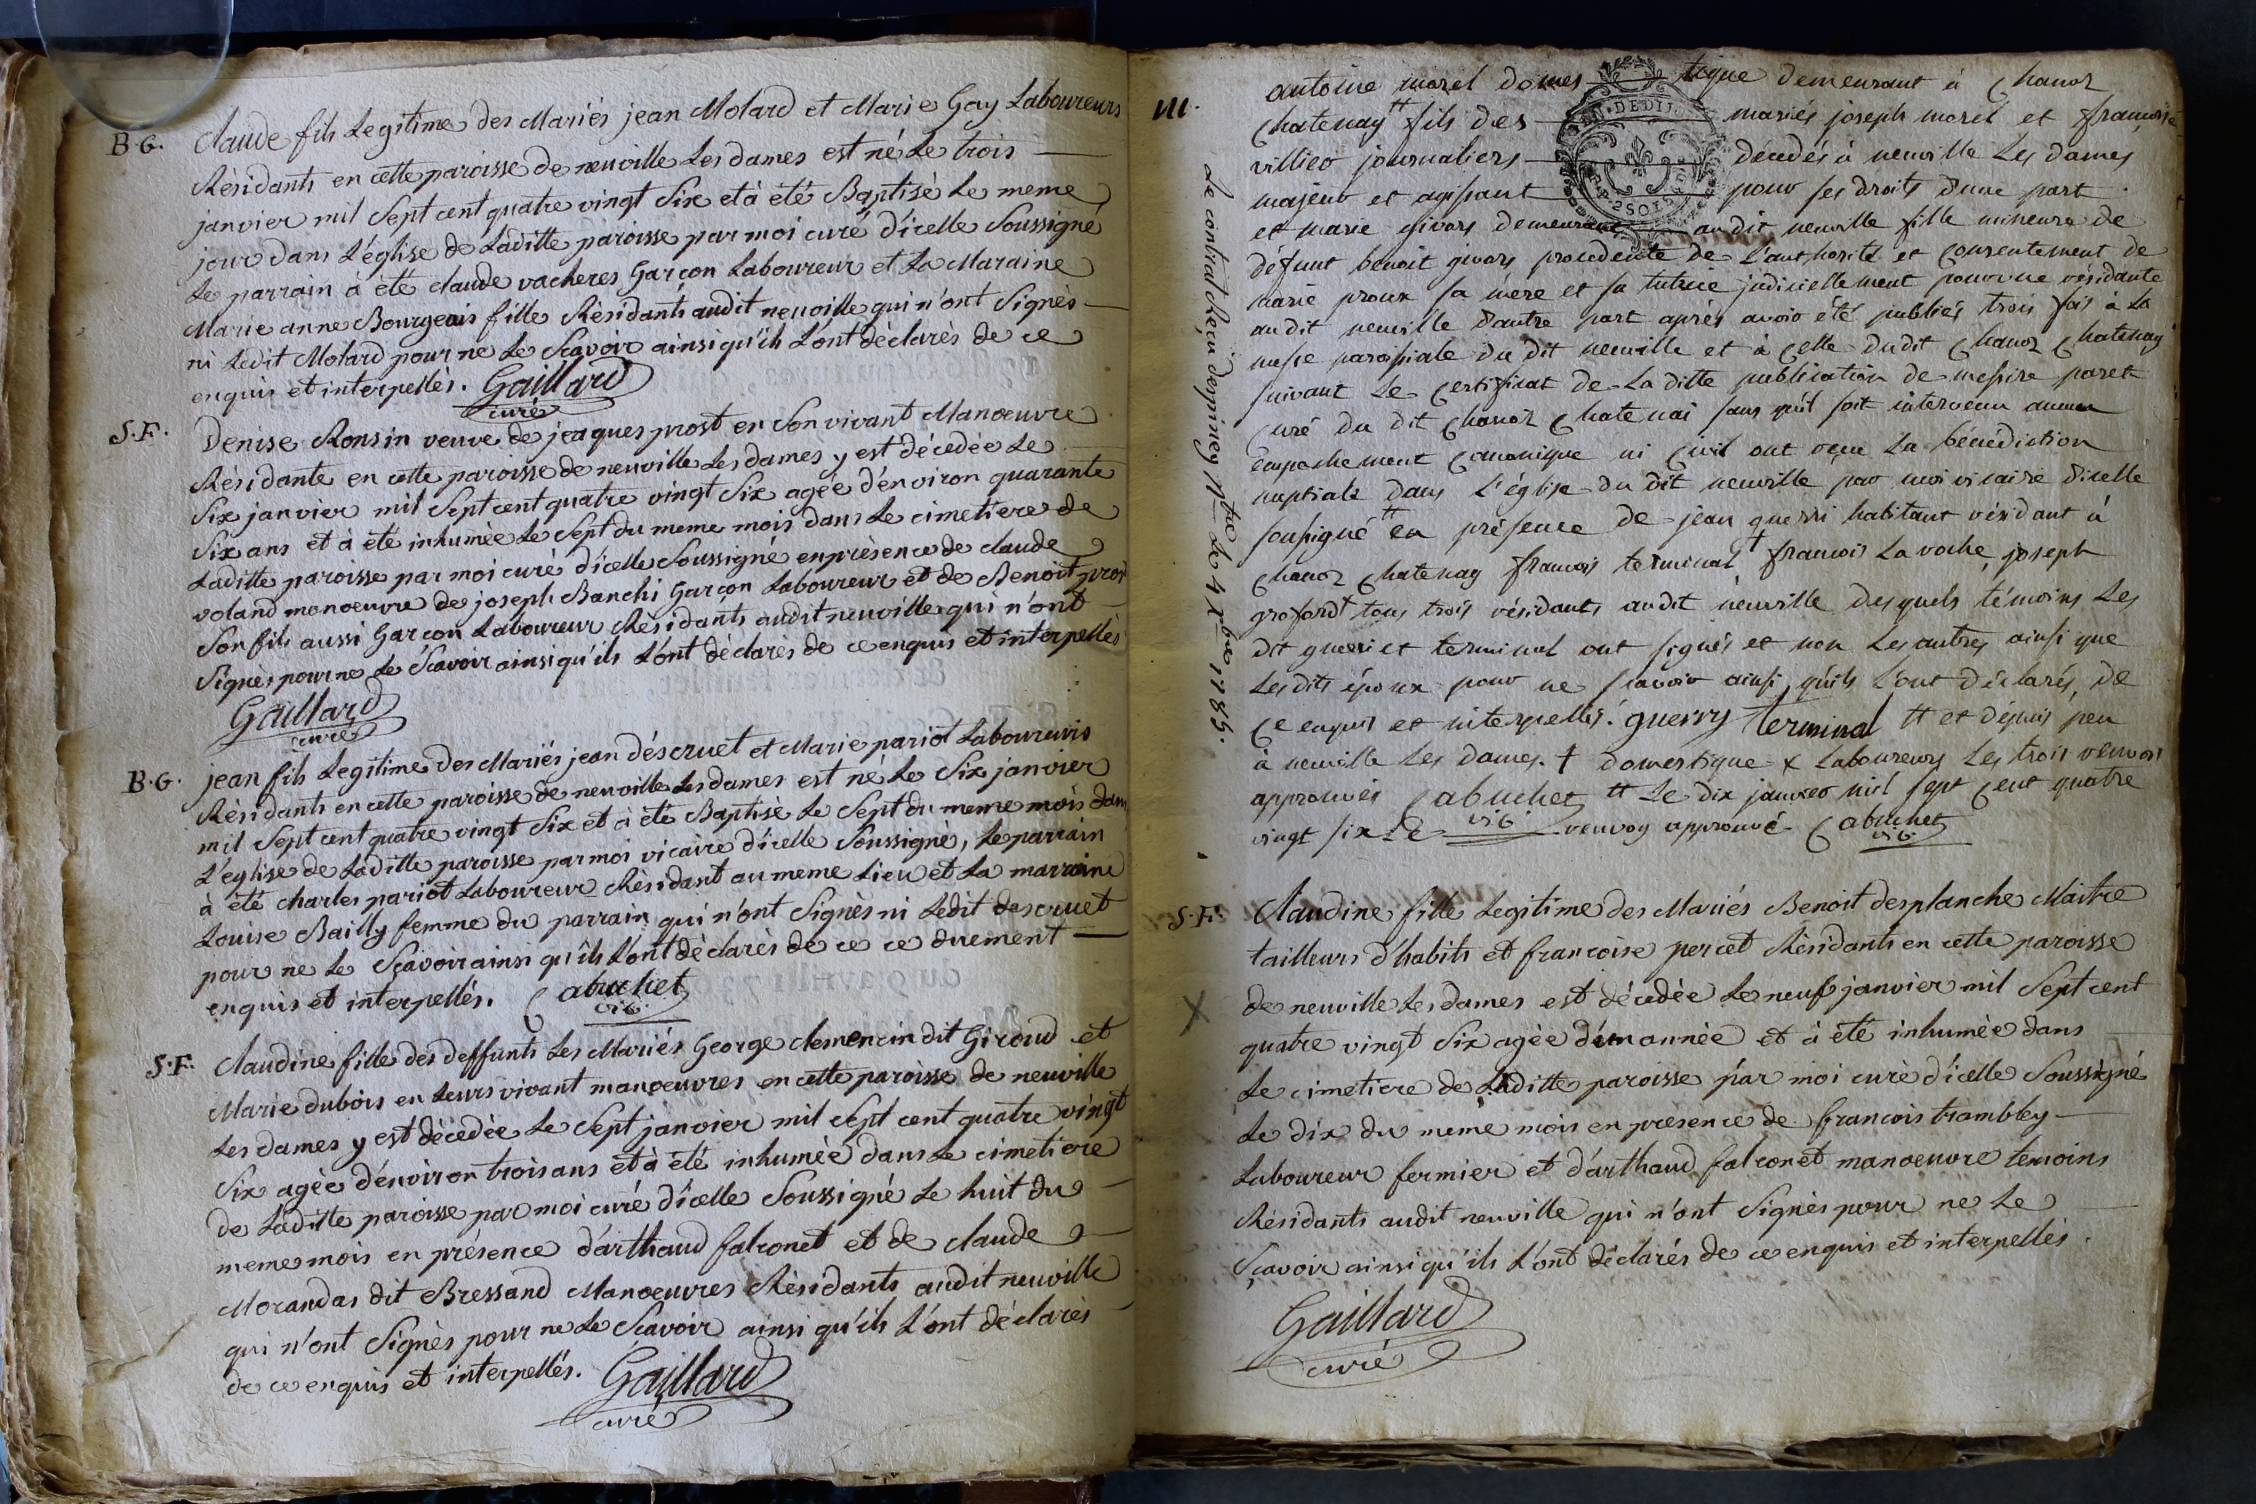 B.G.
Claude fils Legitime des Mariés jean Molard et Marie Gay Laboureurs
Résidants en cette paroisse de neuville Les dames est né Le trois
janvier mil Sept cent quatre vingt Six et à été Baptisé Le meme
jour dans L'église de Laditte paroisse par moi curé d'icelle Soussigné
Le parrain à été claude vacheres Garçon Laboureur et La Maraine
Marie anne Bourgeois fille Résidants audit neuville qui n'ont Signés
ni Ledit Molard pour ne Le Scavoir ainsi qu'ils L'ont déclarés de ce
enquis et interpellés. Gaillard
curé
S.F.
Denise Ronsin veuve de jeaques prost en Son vivant Manœuvre
Résidante en cette paroisse de neuville Les dames y est décédée Le
Six janvier mil Sept cent quatre vingt Six agée d'environ quarante
Six ans et à été inhumée Le Sept du meme mois dans Le cimetiere de
Laditte paroisse par moi curé d'icelle Soussigné en présence de claude
voland manœuvre de joseph Banchi Garçon Laboureur et de Benoit prost
Son fils aussi Garçon Laboureur Résidants audit neuville qui n'ont
Signés pour ne Le Scavoir ainsi qu'ils L'ont déclarés de ce enquis et interpellés
Gaillard
curé
B.G.
jean fils Legitime des Mariés jean déscruet et Marie pariot Laboureurs
Résidants en cette paroisse de neuville Les dames est né Le Six janvier
mil Sept cent quatre vingt Six et à été Baptisé Le Sept du meme mois dans
L'église de Laditte paroisse par moi vicaire d'icelle Soussigné, Le parrain
à été charles pariot Laboureur Résidant au meme Lieu et La marraine
Louise Bailly femme du parrain qui n'ont Signés ni Ledit descruet
pour ne Le Sçavoir ainsi qu'ils L'ont déclarés de ce ce duement
enquis et interpellés. Cabuchet
vic.
S.F.
Claudine fille des deffunts Les Mariés George clemencin dit Giroud et
Marie dubois en Leurs vivant manœuvres en cette paroisse de neuville
Les dames y est décédée Le Sept janvier mil Sept cent quatre vingt
Six agée d'environ trois ans et à été inhumée dans Le cimetiere
de Laditte paroisse par moi curé d'icelle Soussigné Le huit du
meme mois en présence d'arthaud falconet et de claude
Morandas dit Bressand Manœuvres Résidants audit neuville
qui n'ont Signés pour ne Le Scavoir ainsi qu'ils L'ont déclarés
de ce enquis et interpellés. Gaillard
curé
m.
antoine morel domes tique demeurant à Chanoz
Chatenay # fils des mariés joseph morel et françoise
villier journaliers décédés à neuville Les dames
majeur et agissant pour ses droits d'une part
et marie givors demeurant audit neuville fille mineure de
défunt benoit givors procedente de L'authorité et consentement de
marie proux sa mère et sa tutrice judiciellement pourvue résidante
audit neuville d'autre part après avoir été publiés trois fois à La
messe paroissiale du dit neuville et à Celle dudit Chanoz Chatenay
suivant Le Certificat de La ditte publication de messire paret
Curé du dit Chanoz Chatenai sans qu'il soit intervenu aucun
empechement Canonique ni Civil ont recu La bénédiction
nuptiale dans L'église du dit neuville par moi vicaire d'icelle
soussigné # en présence de jean guerri habitant résidant à
Chanoz Chatenay françois terminal † françois La roche, joseph
grosford † tous trois résidants audit neuville desquels témoins Les
dit guerri et terminal ont signés et non Les autres ainsi que
Lesdits époux pour ne scavoir ainsi qu'ils L'ont déclarés, de
Ce enquis et interpellés. guerry Terminal # et depuis peu
à neuville Les dames. † domestique x Laboureurs Les trois renvois
approuvés Cabuchet # Le dix janvier mil sept Cent quatre
vic.
vingt six renvoy approuvé Cabuchet
vic.
Le contrat Reçu depiney Ntre Le 4 Xbre 1785.
S.F.
Claudine fille Legitime des Mariés Benoit desplanche Maitre
tailleurs d'habits et francoise percet Résidants en cette paroisse
de neuville Les dames est décédée Le neuf janvier mil Sept cent
quatre vingt Six agée d'un année et à été inhumée dans
Le cimetiere de Laditte paroisse par moi curé d'icelle Soussigné
Le dix du meme mois en presence de francois trambley
Laboureur fermier et d'arthaud falconet manœuvre temoins
Résidants audit neuville qui n'ont Signés pour ne Le
Sçavoir ainsi qu'ils L'ont déclarés de ce enquis et interpellés.
Gaillard
curé